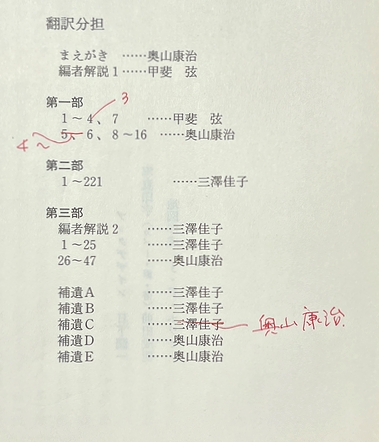 翻訳分担
まえがき ……奥山康治
編者解説1……甲斐 弦
第一部
1〜4、7 ……甲斐 弦
3
5、6、8〜16 ……奥山康治
4〜
第二部
1〜221 ……三澤佳子
第三部
編者解説2 ……三澤佳子
1〜25 ……三澤佳子
26〜47 ……奥山康治
補遺A ……三澤佳子
補遺B ……三澤佳子
補遺C ……三澤佳子 奥山康治
補遺D ……奥山康治
補遺E ……奥山康治